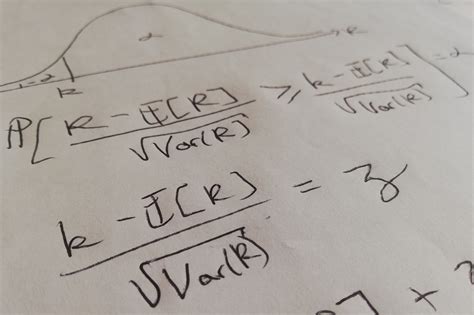 α
1-α k R
P[ (R - E[R]) / √Var(R) ≥ (k - E[R]) / √Var(R) ] = α
(k - E[R]) / √Var(R) = z
] +